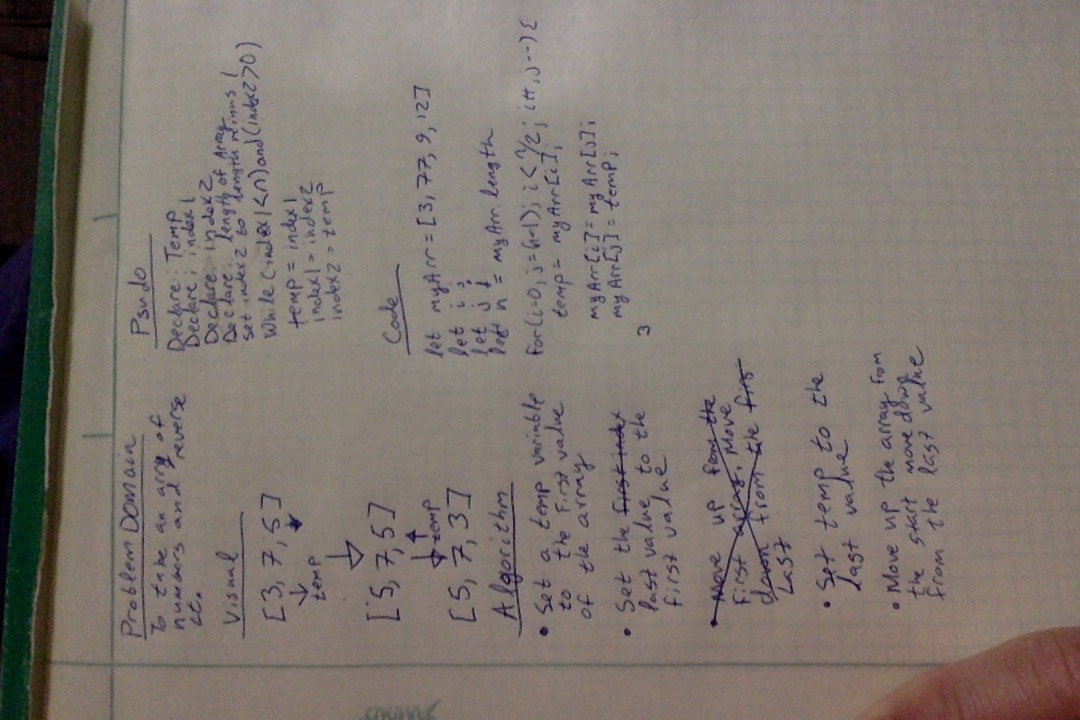 Problem DOMAIN
To take an array of
numbers and reverse
at.
Visual
[3, 7, 5]
temp
[5, 7, 5]
temp
[5, 7, 3]
Algorithm
• Set a temp variable
to the first value
of the array
• Set the first index
last value to the
first value
• Move up from the
first array, Move
down from the first
Last
• Set temp to the
last value
• Move up the array from
the start move down
from the last value
Psudo
Declare: Temp
Declare: index1
Declare: index2
Declare: length of Array
set index2 to length minus 1
While (index1<n) and (index2>0)
temp = index1
index1 = index2
index2 = temp
Code
let myArr = [3, 77, 9, 12]
let i;
let j;
let n = myArr length
for(i=0, j=(n-1); i<n/2; i++, j--) {
temp = myArr[i];
myArr[i] = myArr[j];
myArr[j] = temp;
}